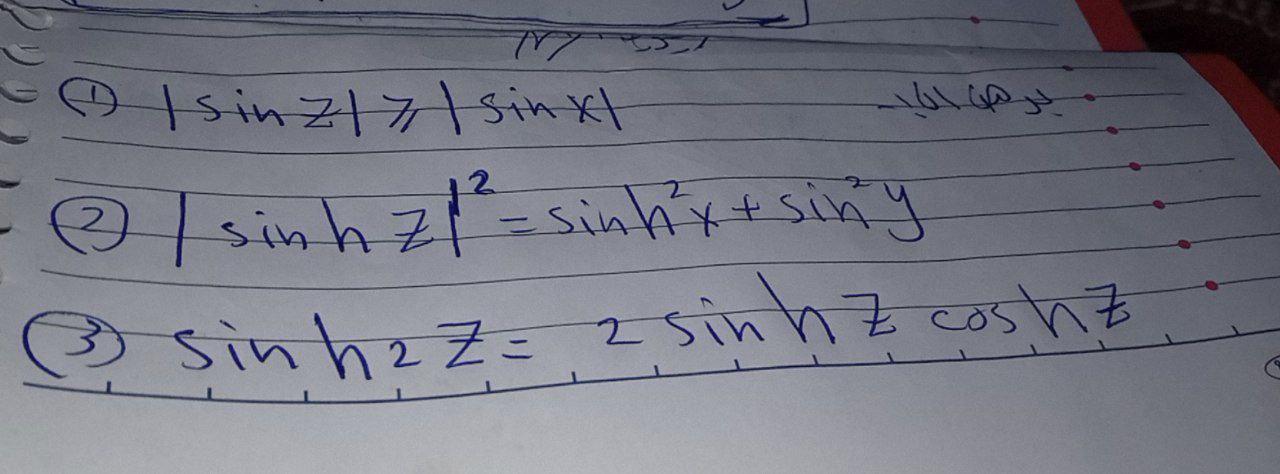 ① |sin z| ⩾ |sin x|
② |sinh z|² = sinh²x + sin²y
③ sinh 2z = 2 sinh z cosh z